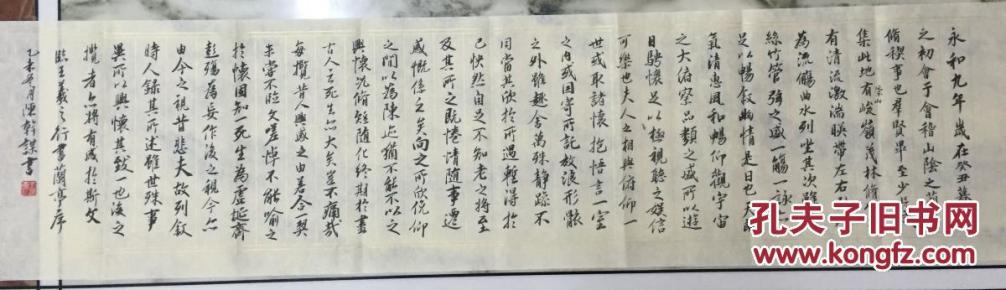 永和九年歲在癸丑暮
之初會于會稽山陰之蘭
脩稧事也群賢畢至少長
集此地有峻嶺茂林脩
崇山
有清流激湍暎帶左右
為流觴曲水列坐其次雖
絲竹管弦之盛一觴一詠
足以暢敘幽情是日也天朗
氣清惠風和暢仰觀宇宙
之大俯察品類之盛所以遊
目騁懷足以極視聽之娛信
可樂也夫人之相與俯仰一
世或取諸懷抱悟言一室
之內或因寄所託放浪形骸
之外雖趣舍萬殊靜躁不
同當其欣於所遇暫得於
己快然自足不知老之將至
及其所之既惓情隨事遷
感慨係之矣向之所欣俛仰
之間以為陳迹猶不能不以之
興懷況脩短隨化終期於盡
古人云死生亦大矣豈不痛哉
每攬昔人興感之由若合一契
未嘗不臨文嗟悼不能喻之
於懷固知一死生為虛誕齊
彭殤為妄作後之視今亦
由今之視昔悲夫故列敘
時人錄其所述雖世殊事
異所以興懷其致一也後之
攬者亦將有感於斯文
臨王羲之行書蘭亭序
乙未 月陳 謀書
孔夫子旧书网
www.kongfz.com